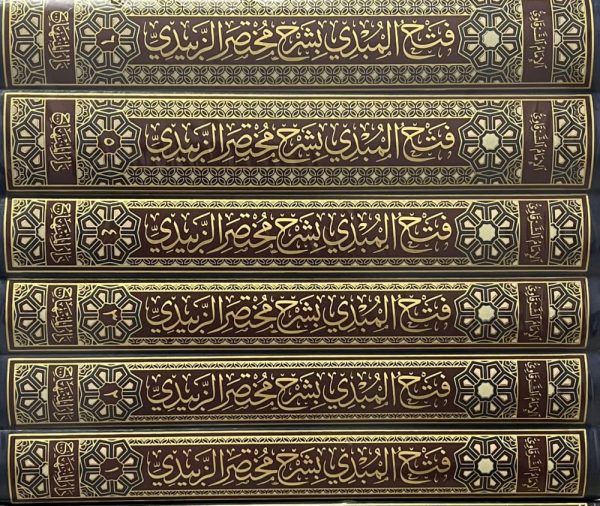 الإمام الشرقاوي فتح المبدي بشرح مختصر الزبيدي ٦
الإمام الشرقاوي فتح المبدي بشرح مختصر الزبيدي ٥
الإمام الشرقاوي فتح المبدي بشرح مختصر الزبيدي ٤
الإمام الشرقاوي فتح المبدي بشرح مختصر الزبيدي ٣
الإمام الشرقاوي فتح المبدي بشرح مختصر الزبيدي ٢
الإمام الشرقاوي فتح المبدي بشرح مختصر الزبيدي ١